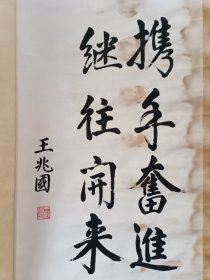 携手奮進
继往开来
王兆國